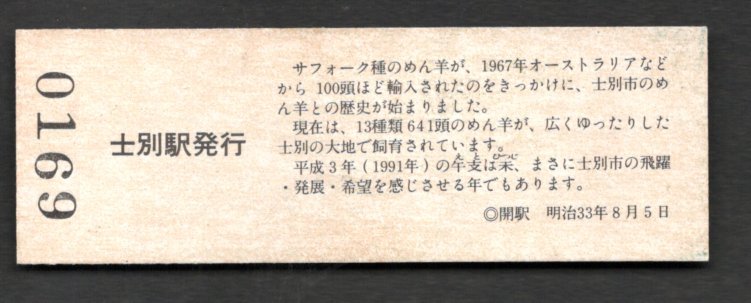 0169
士別駅発行
サフォーク種のめん羊が、1967年オーストラリアなど
から 100頭ほど輸入されたのをきっかけに、士別市のめ
ん羊との歴史が始まりました。
現在は、13種類 641頭のめん羊が、広くゆったりした
士別の大地で飼育されています。
平成3年(1991年)の干支は未、まさに士別市の飛躍
・発展・希望を感じさせる年でもあります。
◎開駅 明治33年8月5日